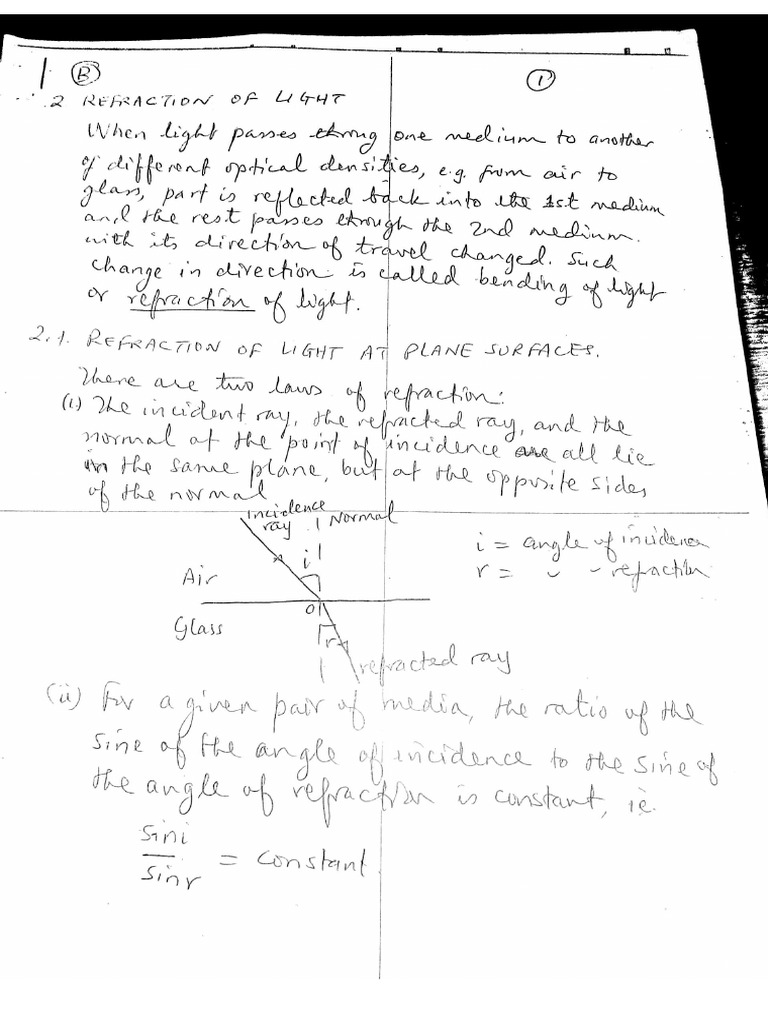 1 B 1
2 REFRACTION OF LIGHT
When light passes throug one medium to another
of different optical densities, e.g. from air to
glass, part is reflected back into the 1st medium
and the rest passes through the 2nd medium.
with its direction of travel changed. Such
change in direction is called bending of light
or refraction of light.
2.1. REFRACTION OF LIGHT AT PLANE SURFACES.
There are two laws of refraction:
(i) The incident ray, the refracted ray, and the
normal at the point of incidence are all lie
in the same plane, but at the opposite sides
of the normal
incidence
ray Normal
i = angle of incidence
i
r = " " refraction
Air
O
Glass
r
refracted ray
(ii) For a given pair of media, the ratio of the
sine of the angle of incidence to the sine of
the angle of refraction is constant, ie.
sin i
sin r = constant.